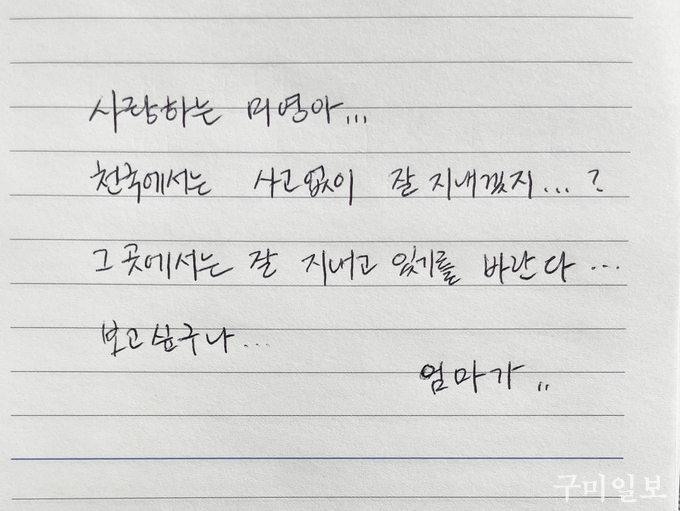 사랑하는 미영아...
천국에서는 사고없이 잘 지내겠지...?
그 곳에서는 잘 지내고 있기를 바란다...
보고싶구나...
엄마가..
구미일보